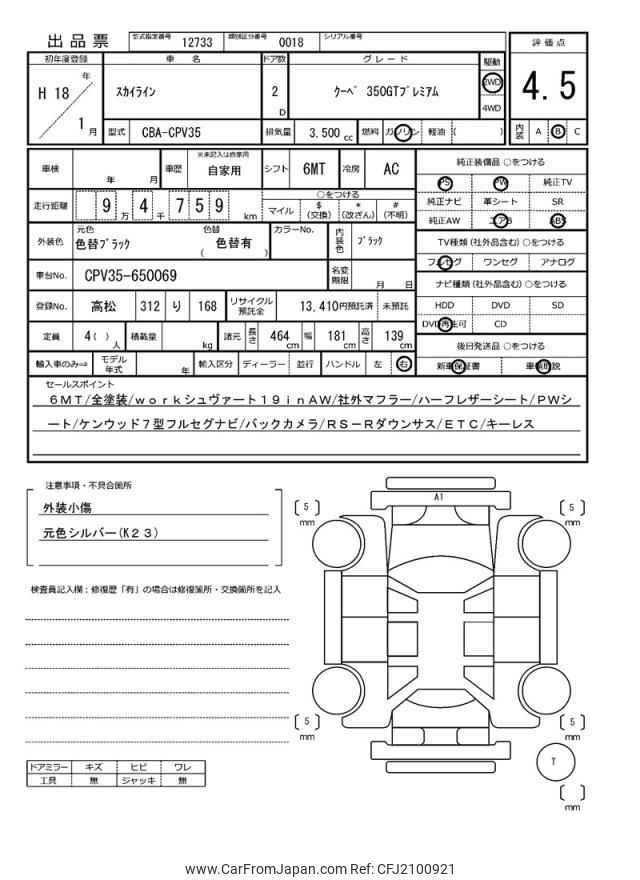 出品票 型式指定番号 12733 類別区分番号 0018 シリアル番号
初年度登録 車 名 ドア数 グレード 駆動 評価点
H 18 年 1 月 スカイライン 2 D クーペ 350GTプレミアム 2WD 4WD 4.5
型式 GBA-CPV35 排気量 3.500 cc 燃料 ガソリン 軽油 ( ) 内装 A B C
車検 年 月 車歴 ※未記入は自家用 自家用 シフト 6MT 冷房 AC
走行距離 9 万 4 千 7 5 9 km ○をつける マイル $ (交換) * (改ざん) # (不明)
外装色 元色 色替ブラック 色替 ( 色替有 ) カラーNo. 内装色 ブラック
車台No. CPV35-650069 名変期限 月 日
登録No. 高松 312 り 168 リサイクル預託金 13,410円預託済 未預託
定員 4( ) 人 積載量 kg 諸元 長さ 464 cm 幅 181 cm 高さ 139 cm
輸入車のみ⇒ モデル年式 年 輸入区分 ディーラー 並行 ハンドル 左 右
純正装備品 ○をつける
PS PW 純正TV
純正ナビ 革シート SR
純正AW エアB ABS
TV種類 (社外品含む) ○をつける
フルセグ ワンセグ アナログ
ナビ種類 (社外品含む) ○をつける
HDD DVD SD
DVD再生可 CD
後日発送品 ○をつける
新車保証書 車輌取説
セールスポイント
6MT/全塗装/workシュヴァート19inAW/社外マフラー/ハーフレザーシート/PWシ
ート/ケンウッド7型フルセグナビ/バックカメラ/RS−Rダウンサス/ETC/キーレス
注意事項・不具合箇所
外装小傷
元色シルバー(K23)
検査員記入欄：修復歴「有」の場合は修復箇所・交換箇所を記入
ドアミラー キズ ヒビ ワレ
工具 無 ジャッキ 無
A1
5 mm
5 mm
5 mm
5 mm
T
mm
www.CarFromJapan.com Ref: CFJ2100921